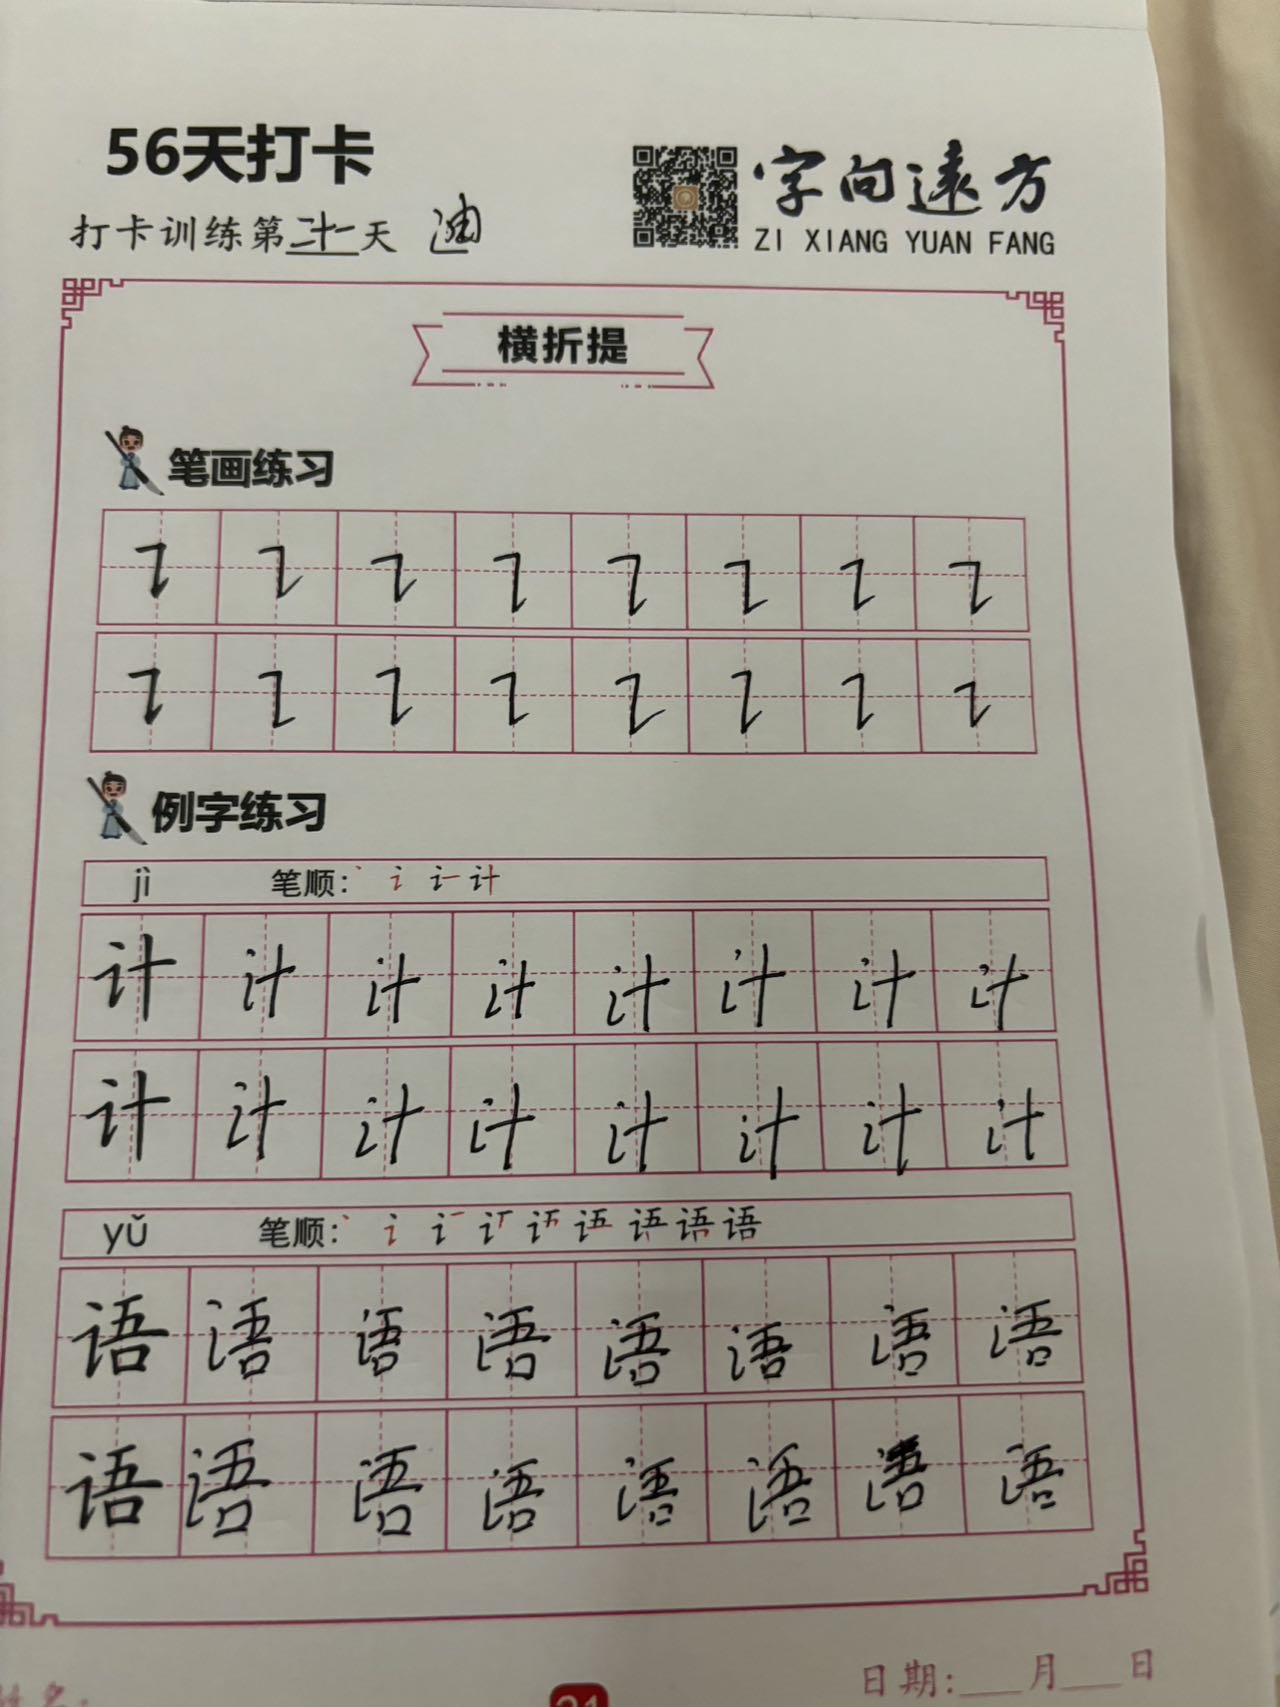 56天打卡
字向远方
ZI XIANG YUAN FANG
打卡训练第二十一天 迪
横折提
笔画练习
例字练习
jì 笔顺:
计 计 计 计 计 计 计 计
计 计 计 计 计 计 计 计
yǔ 笔顺: 语
语 语 语 语 语 语 语 语
语 语 语 语 语 语 语 语
日期:___月___日